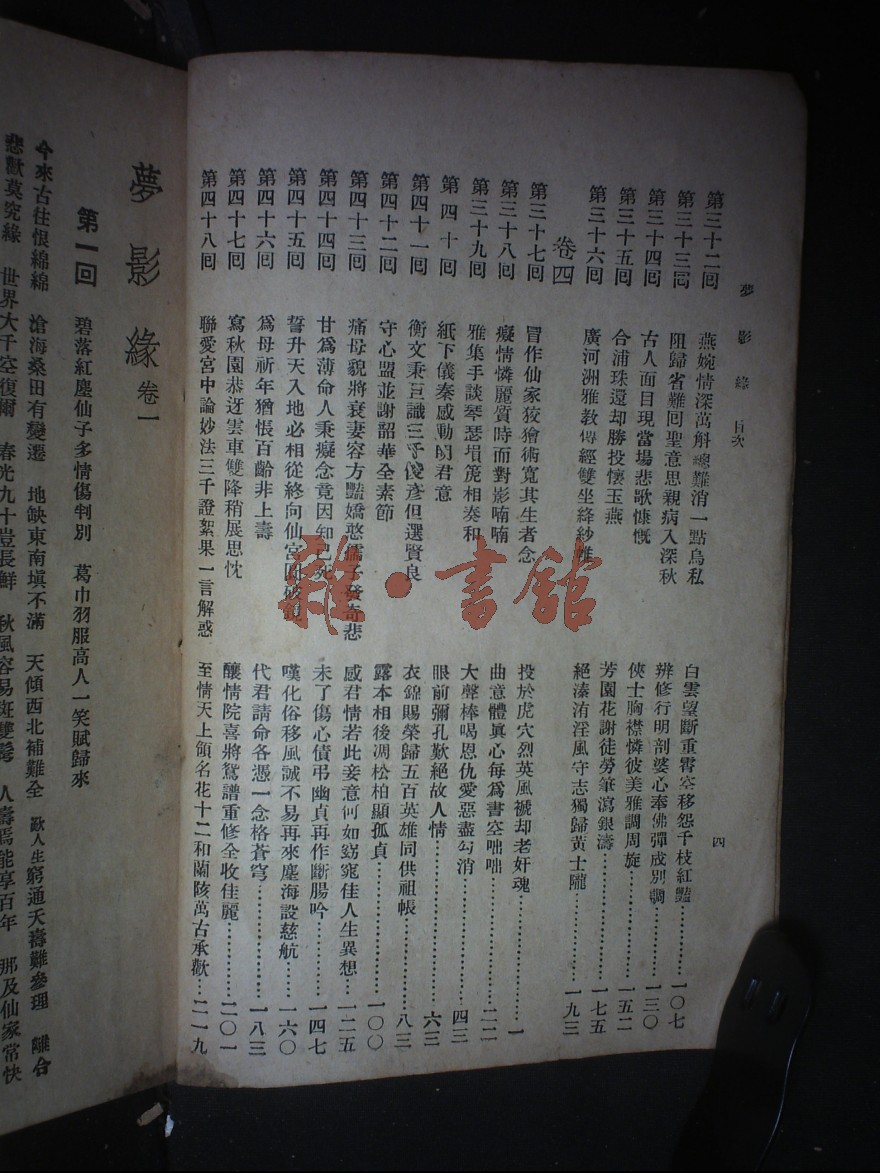 夢影緣 目次
四
第三十二回 燕婉情深萬斛總難消一點烏私 白雲望斷重霄空移怨千枝紅豔…………一〇七
第三十三回 阻歸省難回聖意思親病入深秋 辨修行明剖婆心奉佛彈成別調…………一三〇
第三十四回 古人面目現當場悲歌慷慨 俠士胸襟憐彼美雅調周旋…………一五二
第三十五回 合浦珠還却勝投懷玉燕 芳園花謝徒勞筆瀉銀濤…………一七五
第三十六回 廣河洲雅教傳經雙坐絳紗帷 絕溱洧淫風守志獨歸黃士隴…………一九三
卷四
第三十七回 冒作仙家狡獪術寬其生者念 投於虎穴烈英風褫却老奸魂…………一
第三十八回 癡情憐麗質時而對影喃喃 曲意體眞心每爲書空咄咄…………二二
第三十九回 雅集手談琴瑟塤箎相奏和 大聲棒喝恩仇愛惡盡勾消…………四三
第四十回 紙下儀秦感動明君意 眼前彌孔歎絕故人情…………六三
第四十一回 衡文秉巨識三千俊彥但選賢良 衣錦賜榮歸五百英雄同供祖帳…………八三
第四十二回 守心盟並謝韶華全素節 露本相後凋松柏顯孤貞…………一〇〇
第四十三回 痛母貌將衰妻容方豔嬌憨孺子發奇悲 感君情若此妾意何如窈窕佳人生異想…………一二五
第四十四回 甘爲薄命人秉癡念竟因知己死 未了傷心債弔幽貞再作斷腸吟…………一四七
第四十五回 誓升天入地必相從終向仙宮圓破鏡 嘆化俗移風誠不易再來塵海設慈航…………一六〇
第四十六回 爲母祈年猶悵百齡非上壽 代君請命各憑一念格蒼穹…………一八三
第四十七回 寫秋園恭迓雲車雙降稍展思忱 釀情院喜將鴛譜重修全收佳麗…………二〇一
第四十八回 聯愛宮中論妙法三千證絮果一言解惑 至情天上領名花十二和蘭陔萬古承歡…二一九
夢影緣 卷一
第一回 碧落紅塵仙子多情傷判別 葛巾羽服高人一笑賦歸來
今來古往恨綿綿 滄海桑田有變遷 地缺東南塡不滿 天傾西北補難全 歎人生窮通夭壽難參理 離合
悲歡莫究緣 世界大千空復爾 春光九十豈長鮮 秋風容易斑雙鬢 人壽焉能享百年 那及仙家常快
雜·書館